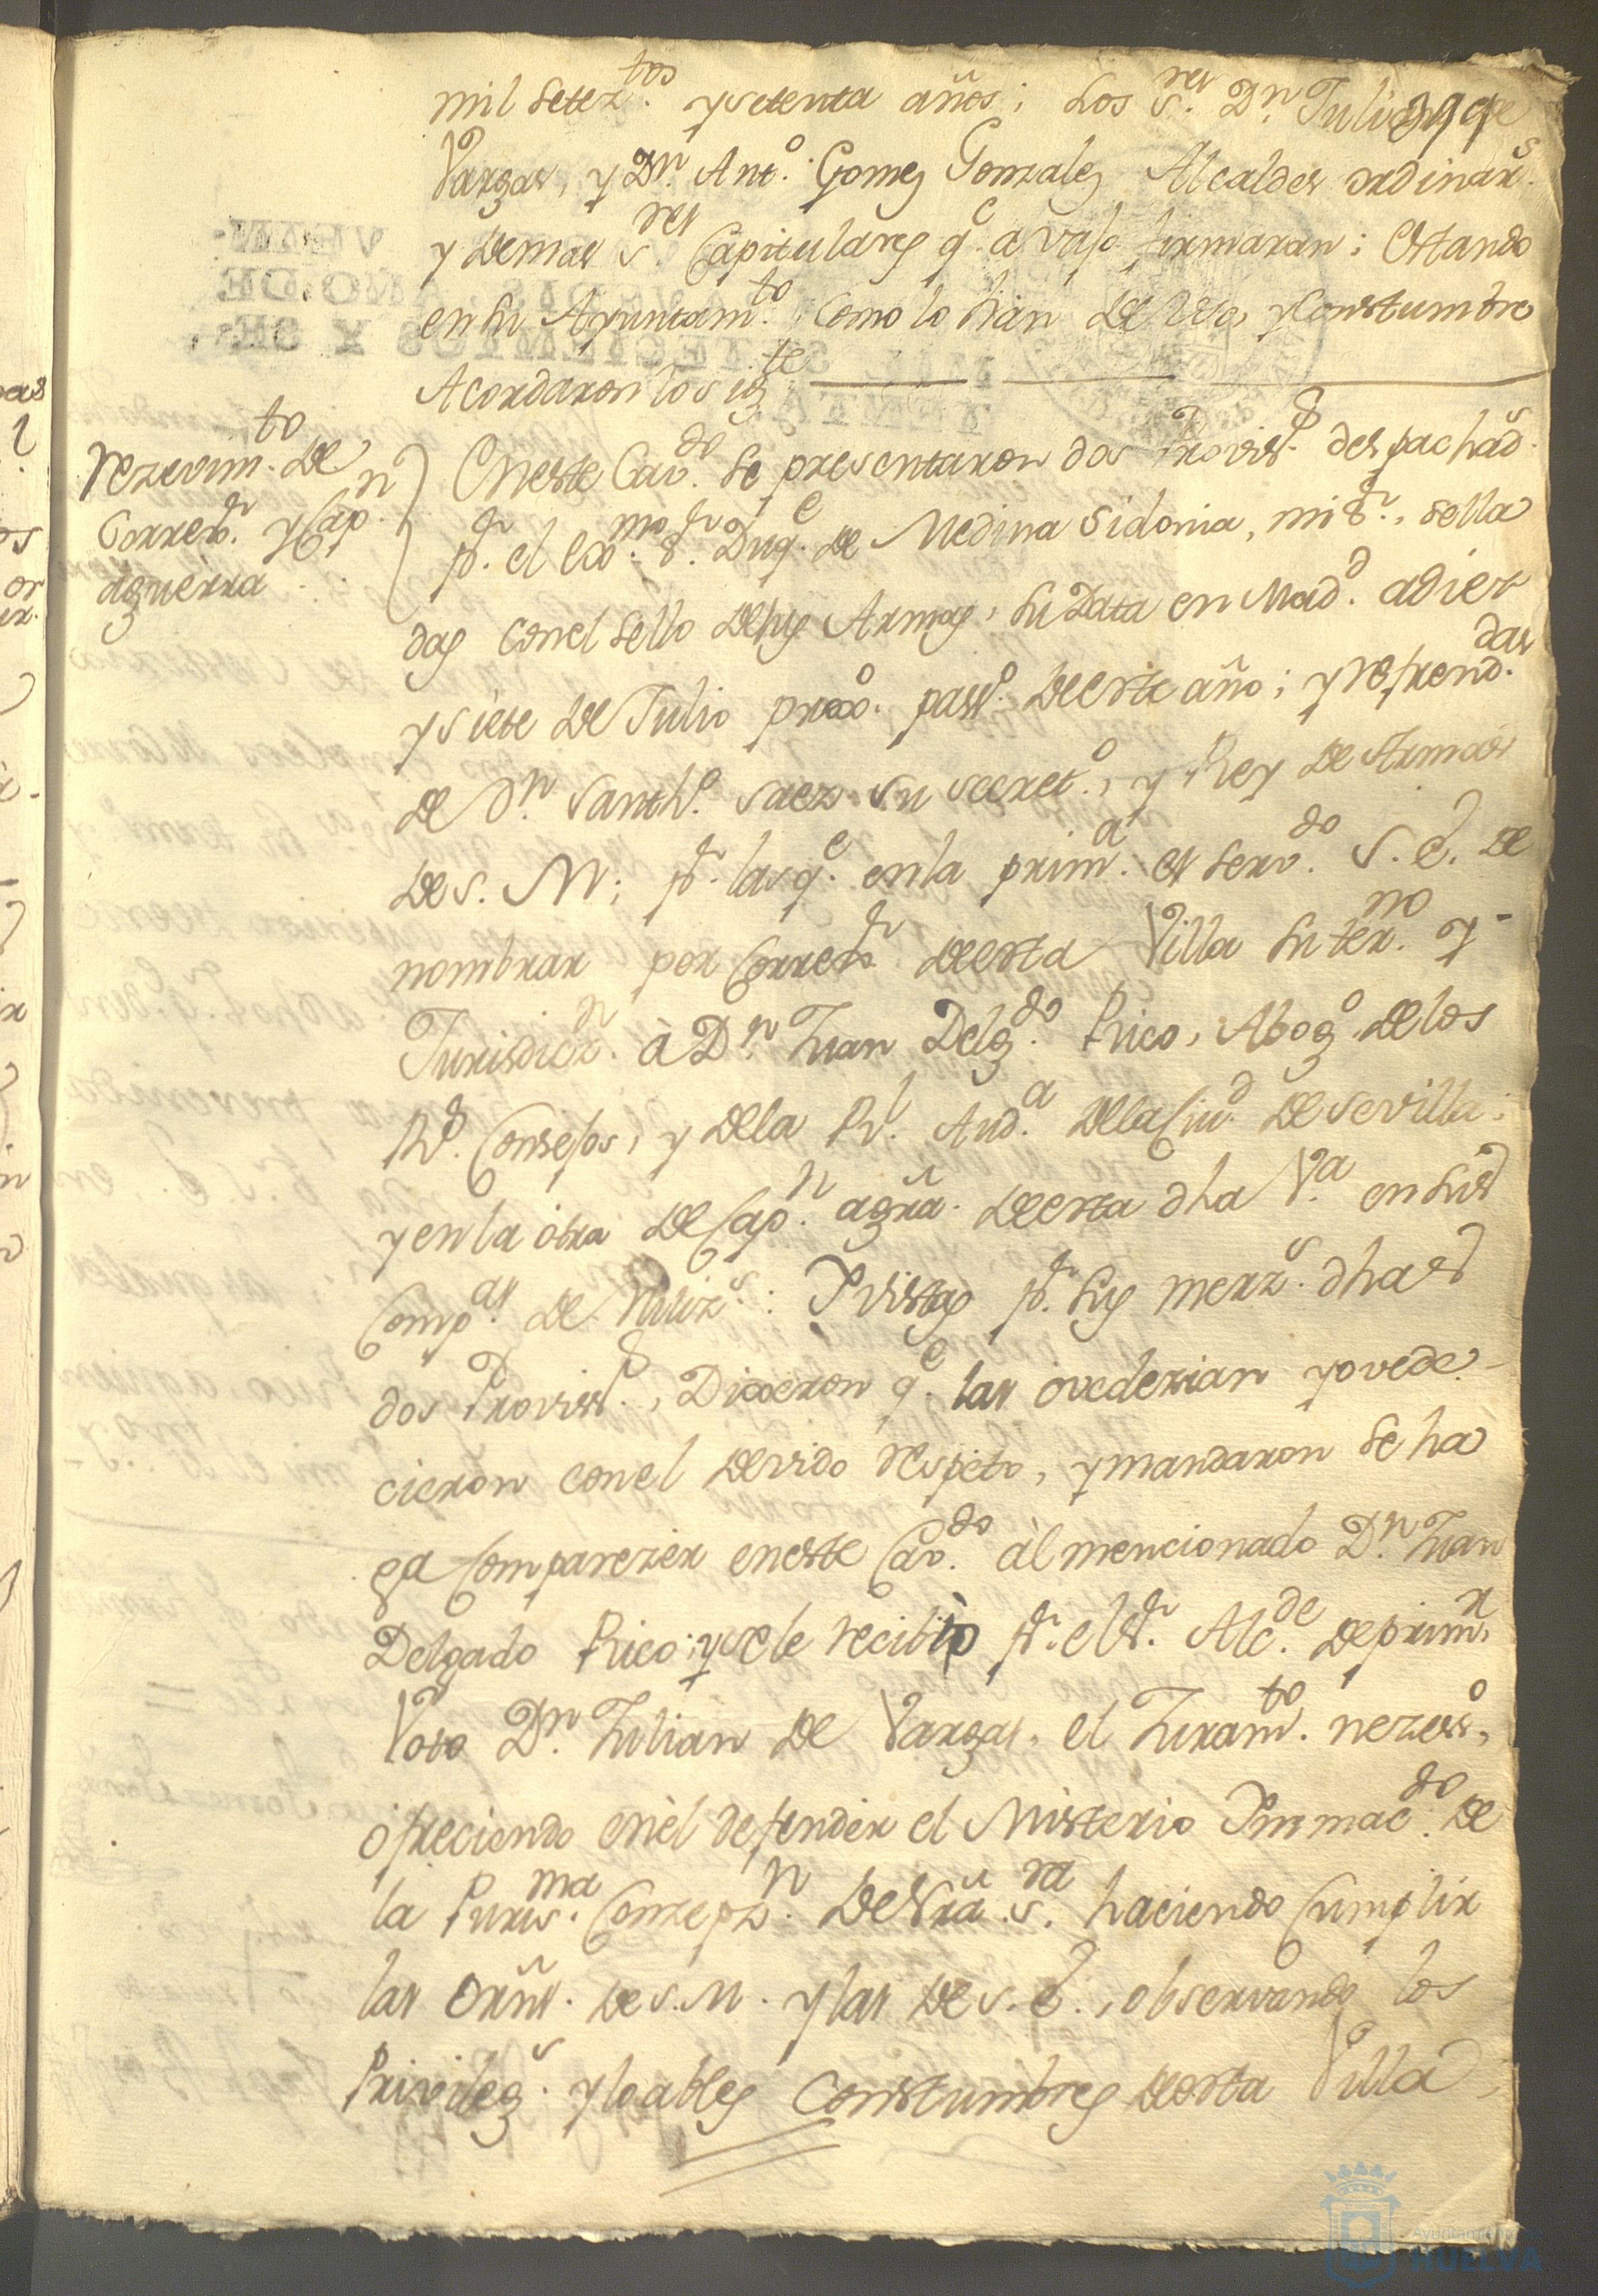 mil Setez.tos y setenta años; Los S.res D.n Julian de
Vargas, y D.n Ant.o Gomez Gonzalez Alcaldes ordinar.s
y Demas S.res Capitulares q.e avajo firmaran; Estando
en su Ayuntam.to, Como lo han de Uso, y Constumbre
Acordaron lo sig.te
Rezevim.to de
Correx.r y Cap.n
aguerra
En este Cav.do Se presentaron dos Proviss.s despachad.s
p.r el Ex.mo S.r Duq.e de Medina Sidonia, mi S.r, sella
das con el Sello de sus Armas, su Data en Mad.d a diez
y siete de Julio proxo. pass.o de este año; y refrend.das
de D.n Santh.o Saez su Secret.o, y Rey de Armas
de S. M; p.r las q.e en la prim.a es serv.do S. E. de
nombrar por Correx.r de esta Villa su term.no y
Jurisdicz.n à D.n Juan Delg.do Rico, Abog.o de los
R.s Consejos, y de la R.l Aud.a de la Ciu.d de Sevilla;
y en la otra de Cap.n agura. de esta dha V.a en sus
Comp.as de Miliz.s: Y vistas p.r sus merz.s dhas
dos Proviss.s, Dixeron q.e las ovedezian y ovede-
cieron con el devido respeto, y mandaron se ha
ga Comparezer en este Cav.do àl mencionado D.n Juan
Delgado Rico; y se le recibiò p.r el S.r Alc.de de primr.
Voto D.n Julian de Vargas, el Juram.to nezess.o,
ofreciendo en èl defender el Misterio Immac.do de
la Puris.ma Conzepz.n de Nra. S.ra haciendo Cumplir
las Orns. de S. M. y las de S. E., observando los
Privileg.s y loables Constumbres de esta Villa
Ayuntamiento de
HUELVA